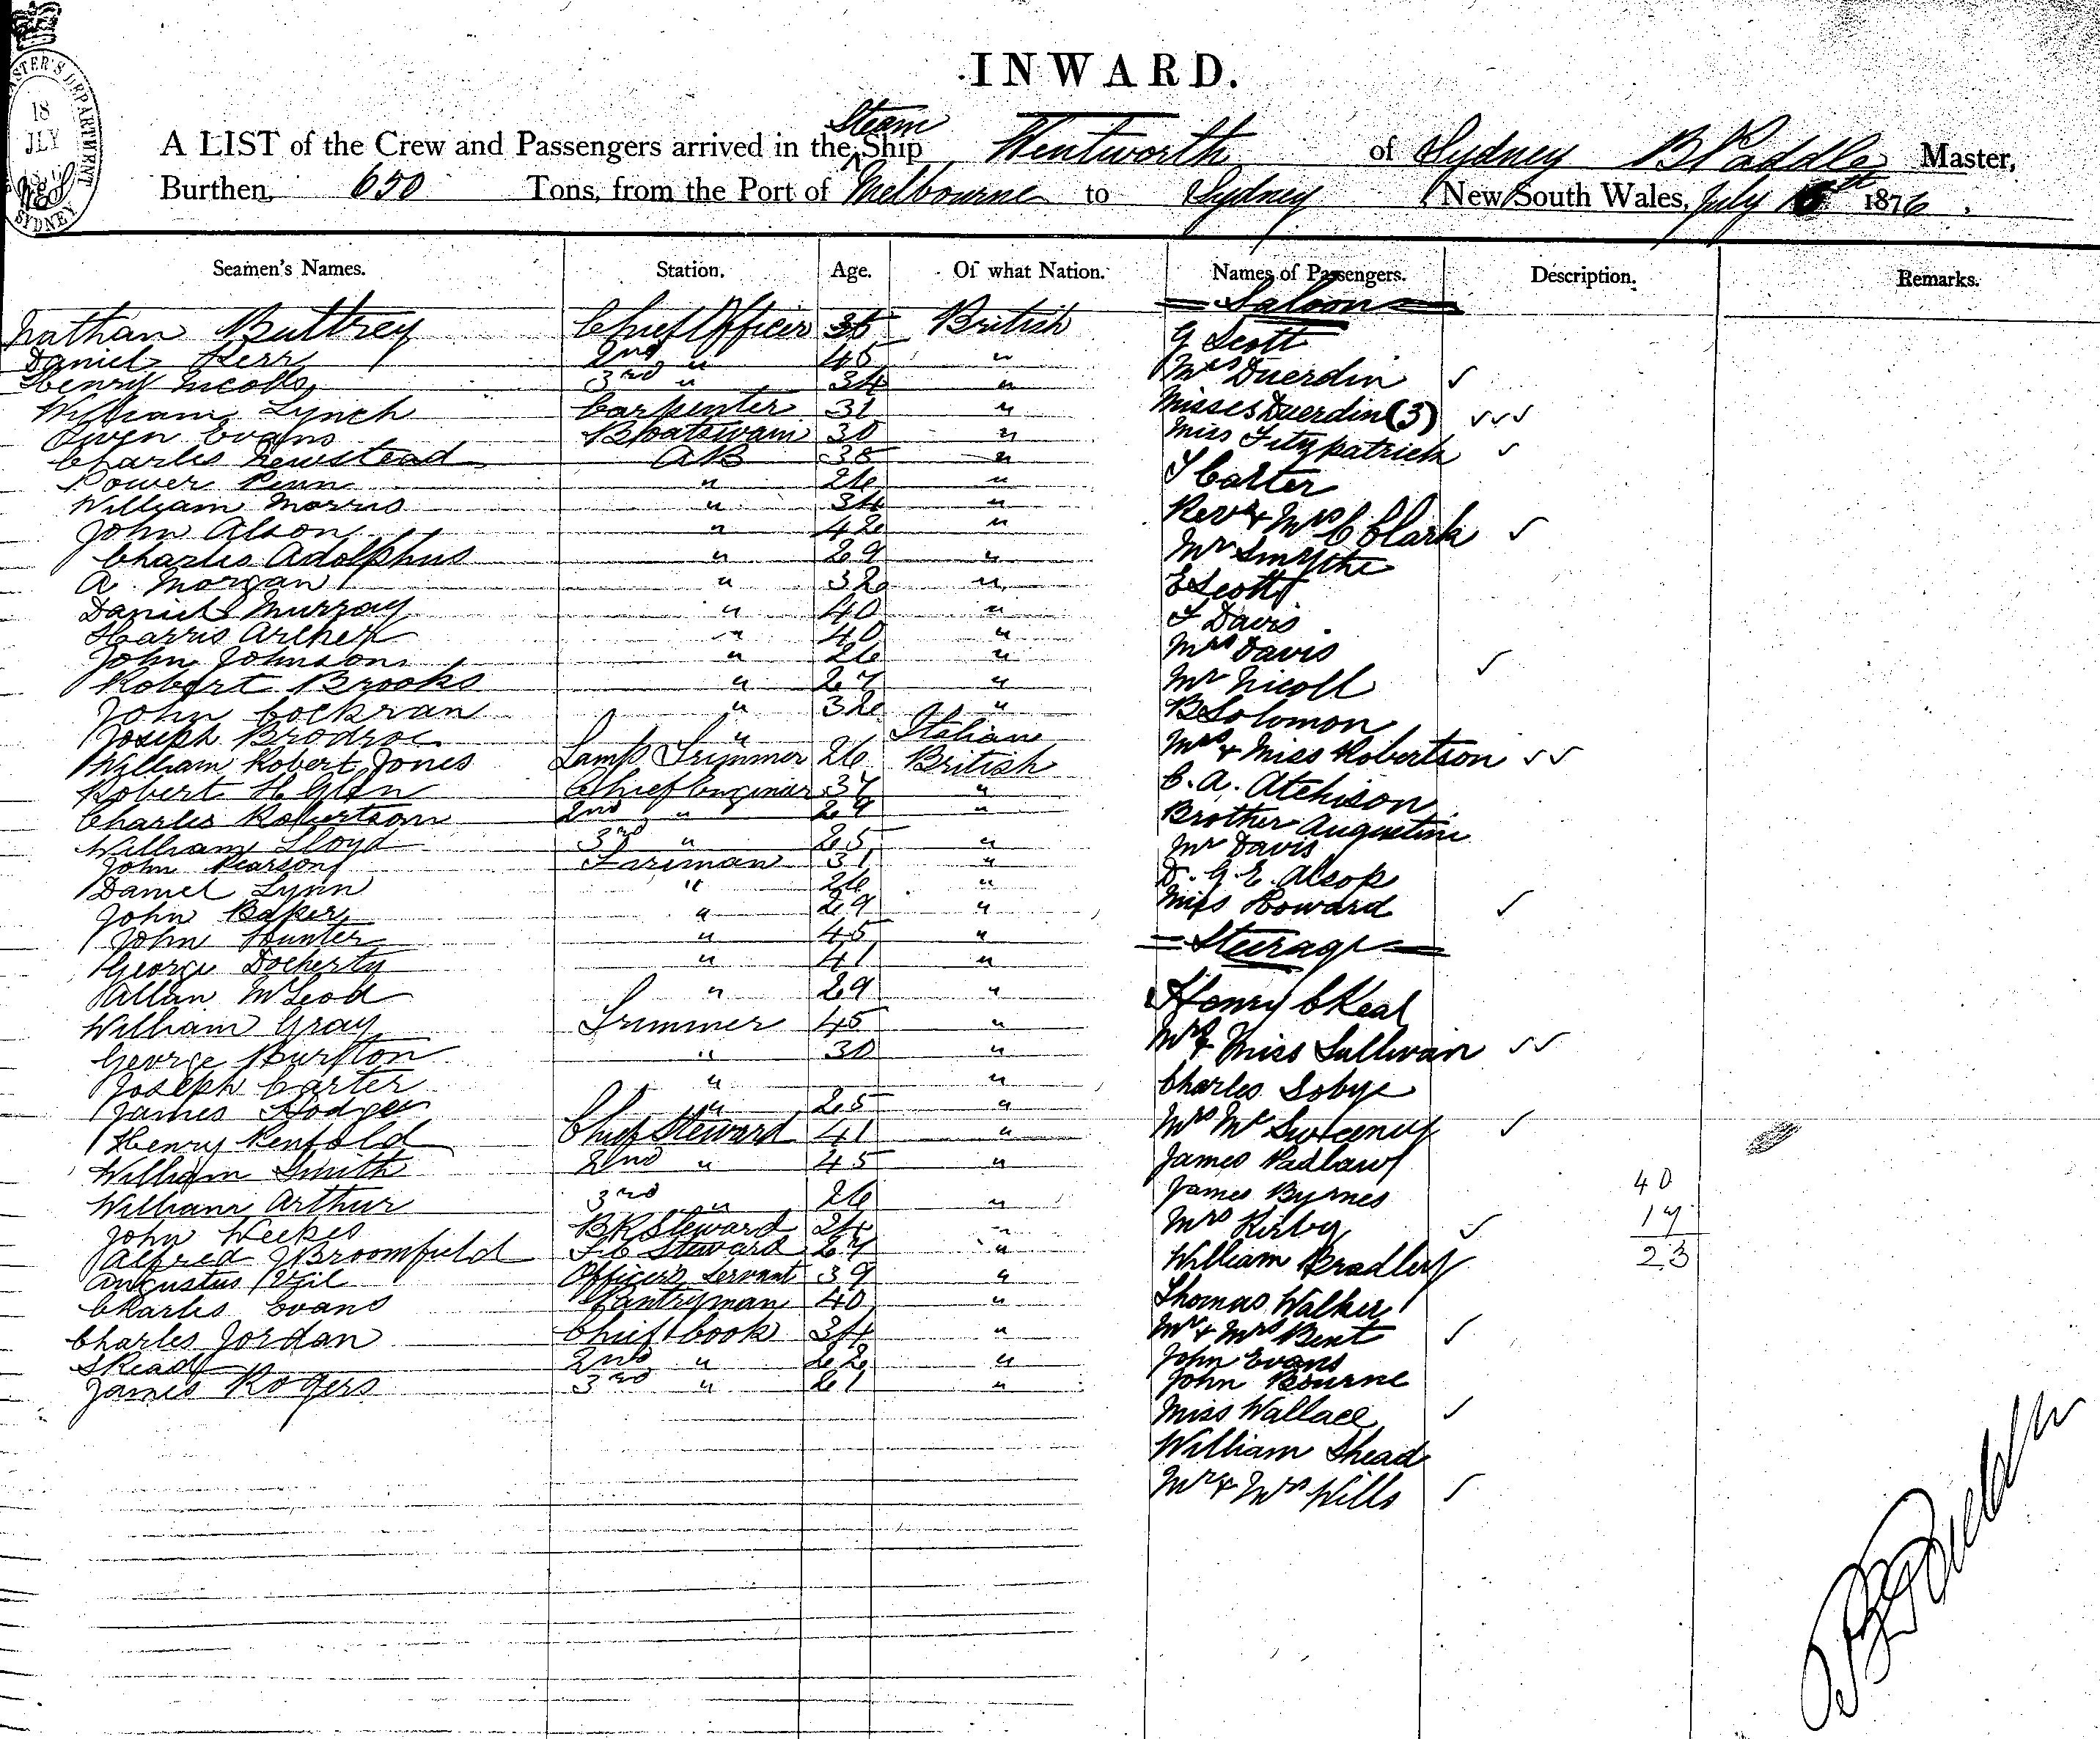 INWARD.
18
JLY
SYDNEY
Steam
A LIST of the Crew and Passengers arrived in the Ship Wentworth of Sydney B Paddle Master,
Burthen, 650 Tons, from the Port of Melbourne to Sydney New South Wales, July 16th 1876.
Seamen's Names. Station. Age. Of what Nation. Names of Passengers. Description. Remarks.
Saloon
Nathan Buttrey Chief Officer 35 British
Daniel Kerr 2nd " 45 "
Henry Nicolls 3rd " 34 "
William Lynch Carpenter 31 "
Owen Evans Boatswain 30 "
Charles Newstead AB 38 "
Power Penn " 26 "
William Morris " 34 "
John Alson " 42 "
Charles Adolphus " 29 "
A. Morgan " 32 "
Daniel Murray " 40 "
Harris Archer " 40 "
John Johnson " 26 "
Robert Brooks " 27 "
John Cockran " 32 "
Joseph Brodroc " Italian
William Robert Jones Lamp Trimmer 26 British
Robert H Glen Chief Enginer 37 "
Charles Robertson 2nd " 29 "
William Lloyd 3rd " 25 "
John Pearson Fireman 31 "
Daniel Lynn " 26 "
John Baker " 29 "
John Hunter " 45 "
George Docherty " 41 "
Allan McLeod " 29 "
William Gray Trimmer 45 "
George Burfton " 30 "
Joseph Carter " "
James Hodges " 25 "
Henry Penfold Chief Steward 41 "
William Smith 2nd " 45 "
William Arthur 3rd " 26 "
John Weekes BR Steward 24 "
Alfred J Broomfield F.C Steward 27 "
Augustus Veil Officer's Servant 39 "
Charles Evans Pantryman 40 "
Charles Jordan Chief Cook 34 "
S Read 2nd " 22 "
James Rogers 3rd " 21 "
G Scott
Mrs Duerdin ✓
Misses Duerdin (3) ✓✓✓
Miss Fitzpatrick ✓
J Carter
Revd & Mrs C Clark ✓
Mr Smythe
E Scott
F Davis
Mrs Davis ✓
Mr Nicoll
B Solomon
Mrs & Miss Robertson ✓✓
C. A. Atchison
Brother Augustine
Mr Davis
D. G. E. Alsop
Miss Howard ✓
Steerage
Henry C Keal
Mrs & Miss Sullivan ✓✓
Charles Sobye
Mrs Mc Sweeney ✓
James Padlaw
James Byrnes
Mrs Kirby ✓
William Bradley
Thomas Walker
Mr & Mrs Bent ✓
John Evans
John Bourne
Miss Wallace ✓
William Shead
Mr & Mrs Wills ✓
40
17
23